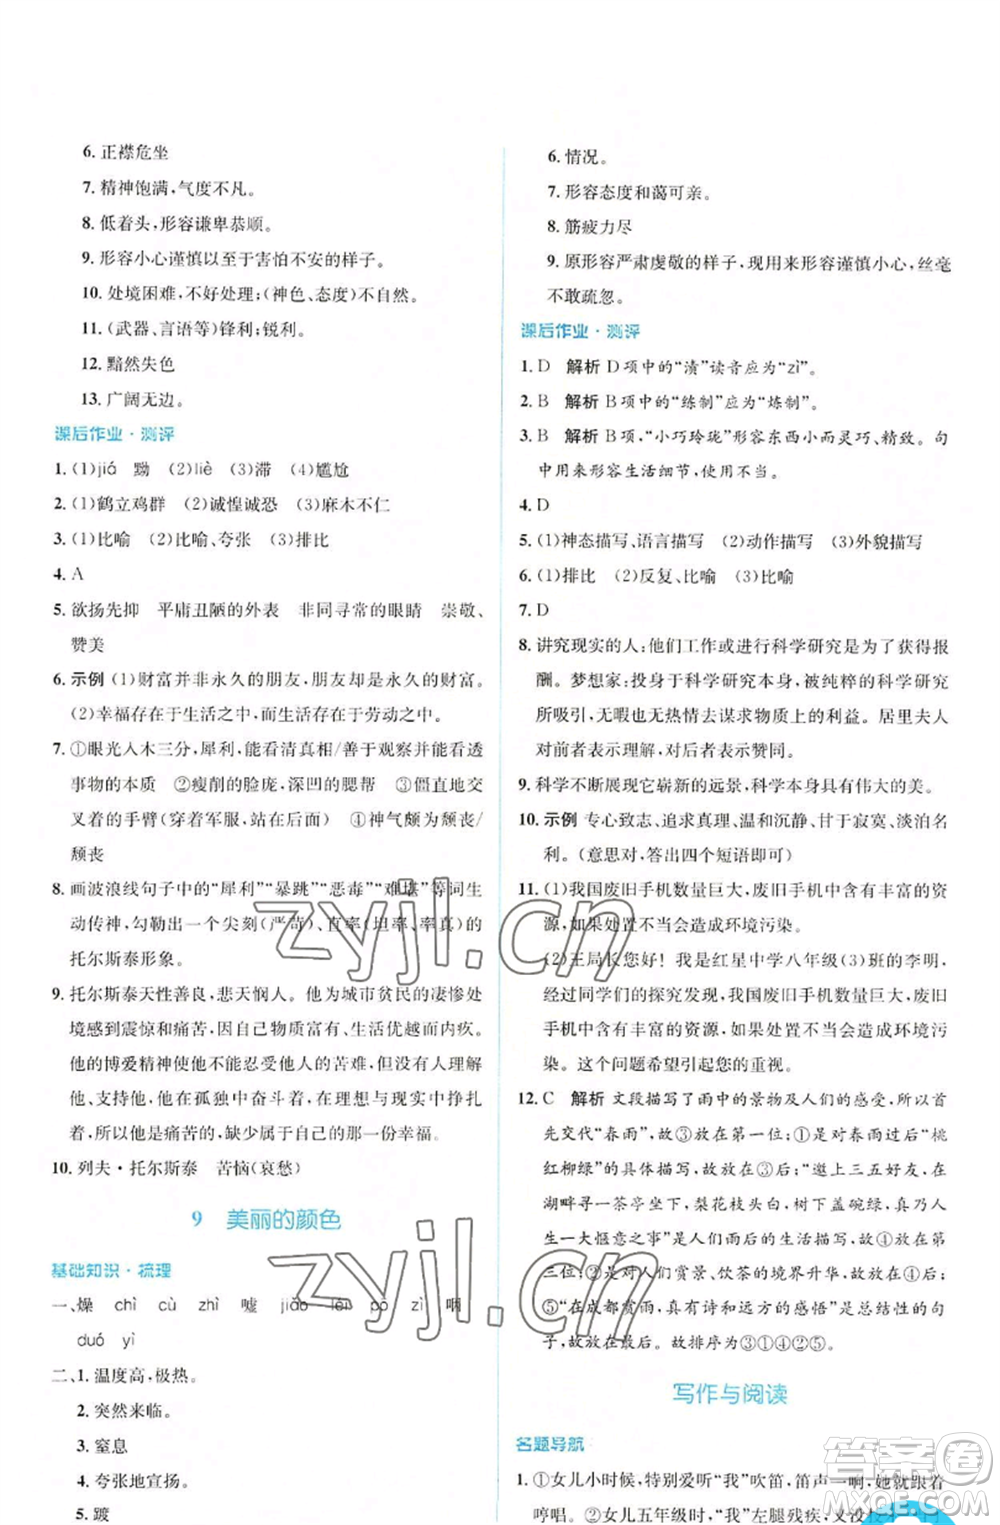 6. 正襟危坐
7. 精神饱满,气度不凡。
8. 低着头,形容谦卑恭顺。
9. 形容小心谨慎以至于害怕不安的样子。
10. 处境困难,不好处理;(神色、态度)不自然。
11. (武器、言语等)锋利;锐利。
12. 黯然失色
13. 广阔无边。
课后作业·测评
1. (1)jiá 黝 (2)liè (3)滞 (4)尴尬
2. (1)鹤立鸡群 (2)诚惶诚恐 (3)麻木不仁
3. (1)比喻 (2)比喻、夸张 (3)排比
4. A
5. 欲扬先抑 平庸丑陋的外表 非同寻常的眼睛 崇敬、
赞美
6. 示例 (1)财富并非永久的朋友,朋友却是永久的财富。
(2)幸福存在于生活之中,而生活存在于劳动之中。
7. ①眼光入木三分,犀利,能看清真相/善于观察并能看透
事物的本质 ②瘦削的脸庞,深凹的腮帮 ③僵直地交
叉着的手臂(穿着军服,站在后面) ④神气颇为颓丧/
颓丧
8. 画波浪线句子中的“犀利”“暴跳”“恶毒”“难堪”等词生
动传神,勾勒出一个尖刻(严苛)、直率(坦率、率真)的
托尔斯泰形象。
9. 托尔斯泰天性善良,悲天悯人。他为城市贫民的凄惨处
境感到震惊和痛苦,因自己物质富有、生活优越而内疚。
他的博爱精神使他不能漠视他人的苦难。没有人理解
他、支持他,他在孤独中奋斗着,在理想与现实中挣扎
着,所以他是痛苦的,缺少属于自己的那一份幸福。
10. 列夫·托尔斯泰 苦恼(哀愁)
9 美丽的颜色
基础知识·梳理
一、燥 chì cù zhì 嘘 jiǎo lěi pò zì 啊
duó yì
二、1. 温度高,极热。
2. 突然来临。
3. 窒息
4. 夸张地宣扬。
5. 踱
6. 情况。
7. 形容态度和蔼可亲。
8. 筋疲力尽
9. 原形容严肃虔敬的样子,现用来形容谨慎小心,丝毫
不敢疏忽。
课后作业·测评
1. D 解析 D项中的“渍”读音应为“zì”。
2. B 解析 B项中的“练制”应为“炼制”。
3. B 解析 B项,“小巧玲珑”形容东西小而灵巧、精致。句
中用来形容生活细节,使用不当。
4. D
5. (1)神态描写、语言描写 (2)动作描写 (3)外貌描写
6. (1)排比 (2)反复、比喻 (3)比喻
7. D
8. 讲究现实的人:他们工作或进行科学研究是为了获得报
酬。梦想家:投身于科学研究本身,被纯粹的科学研究
所吸引,无暇也无热情去谋求物质上的利益。居里夫人
对前者表示理解,对后者表示赞同。
9. 科学不断展现它崭新的远景,科学本身具有伟大的美。
10. 示例 专心致志、追求真理、温和沉静、甘于寂寞、淡泊名
利。(意思对,答出四个短语即可)
11. (1)我国废旧手机数量巨大,废旧手机中含有丰富的资
源,如果处置不当会造成环境污染。
(2)王局长您好!我是红星中学八年级(3)班的李明,
经过同学们的探究发现,我国废旧手机数量巨大,废旧
手机中含有丰富的资源,如果处置不当会造成环境污
染。这个问题希望引起您的重视。
12. C 解析 文段描写了雨中的景物及人们的感受,所以首
先交代“春雨”,故③放在第一位;①应为“桃
红柳绿”的雨景,故放在③后;“邀上三五好友,在
湖畔寻一茶亭坐看,梨花枝头白,树下茶碗绿,自然
是一大惬意之事”是对雨中人的生活描写,故④在第
三位;②把人们赏景、饮茶的境界升华,故放在④后;
⑤“在成都赏雨,真有诗和远方的感悟”是总结性的句
子,故放在最后。故排序为③①④②⑤。
写作与阅读
名题导航
1. ①女儿小时候,特别爱听“我”吹笛,笛声一响,她就跟着
哼唱。②女儿五年级时,“我”左腿残疾,又没
zyjl.cn
zyjl.cn
答案圈
MXQE.COM